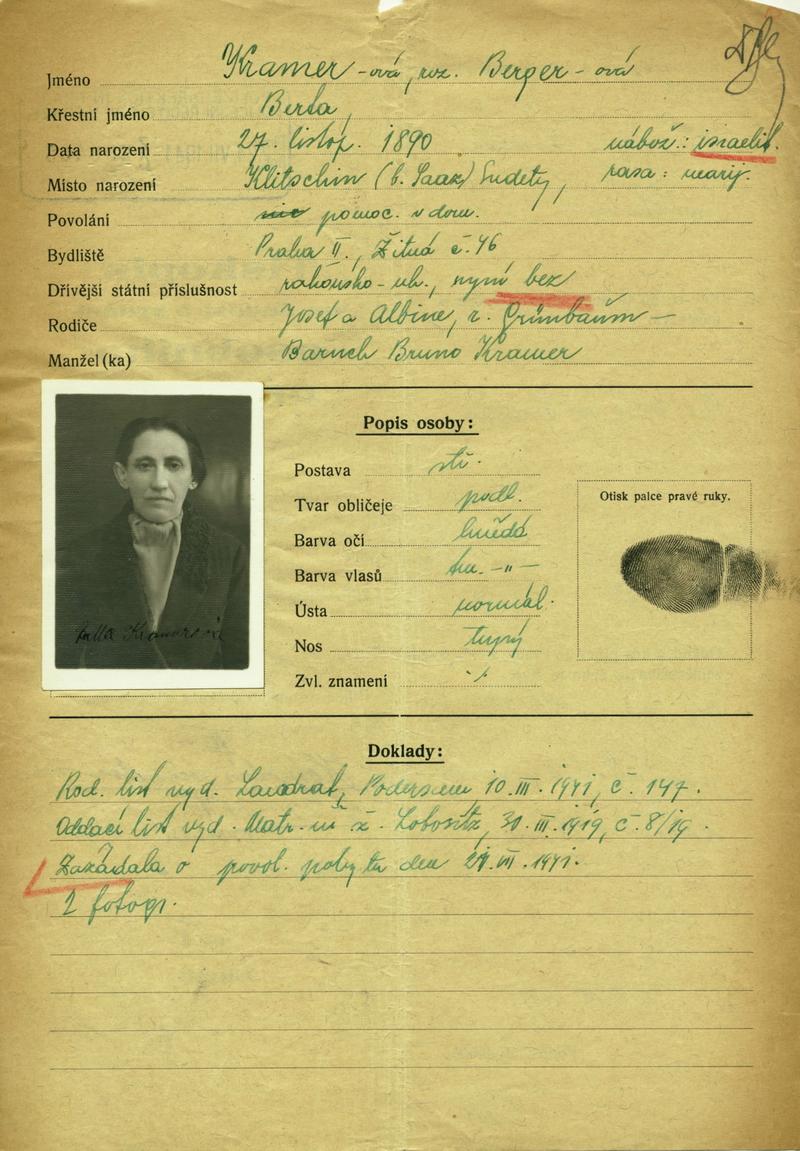 Jméno Kramer-ová, roz. Berger-ová
Křestní jméno Berta,
Data narození 27. listop. 1890 nábož.: israelit.
Místo narození Klitschin (b. Saaz) Sudety, rasa: nearij.
Povolání nic pomoc. v dom.
Bydliště Praha II., Žitná č. 46
Dřívější státní příslušnost rakousko-uh., nyní bez
Rodiče Josef a Albine, r. Grünbaum —
Manžel (ka) Baruch Bruno Kramer
Popis osoby:
Postava stř.
Tvar obličeje podl.
Barva očí hnědá
Barva vlasů tm. -"-
Ústa normál.
Nos tupý
Zvl. znamení ·/·
Otisk palce pravé ruky.
Kramerová
Doklady:
Rod. list vyd. Landrat, Podersam 10.III.1941, č. 147.
Oddací list vyd. Matr. úř. ž. Lobositz, 30.III.1919, č. 8/19.
Zažádala o povol. pobytu dne 24.VII.1941.
2 fotogr.